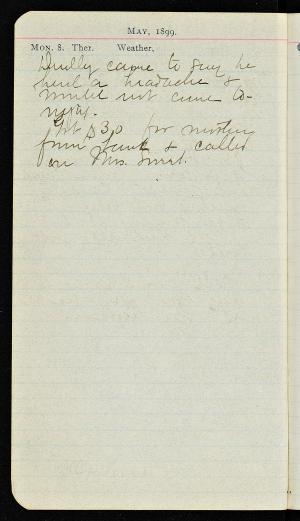 May, 1899.
Mon. 8. Ther. Weather,
came to say he
had a headache &
would not come to-
night.
Got $30 for mother
from bank & called
on Mrs.